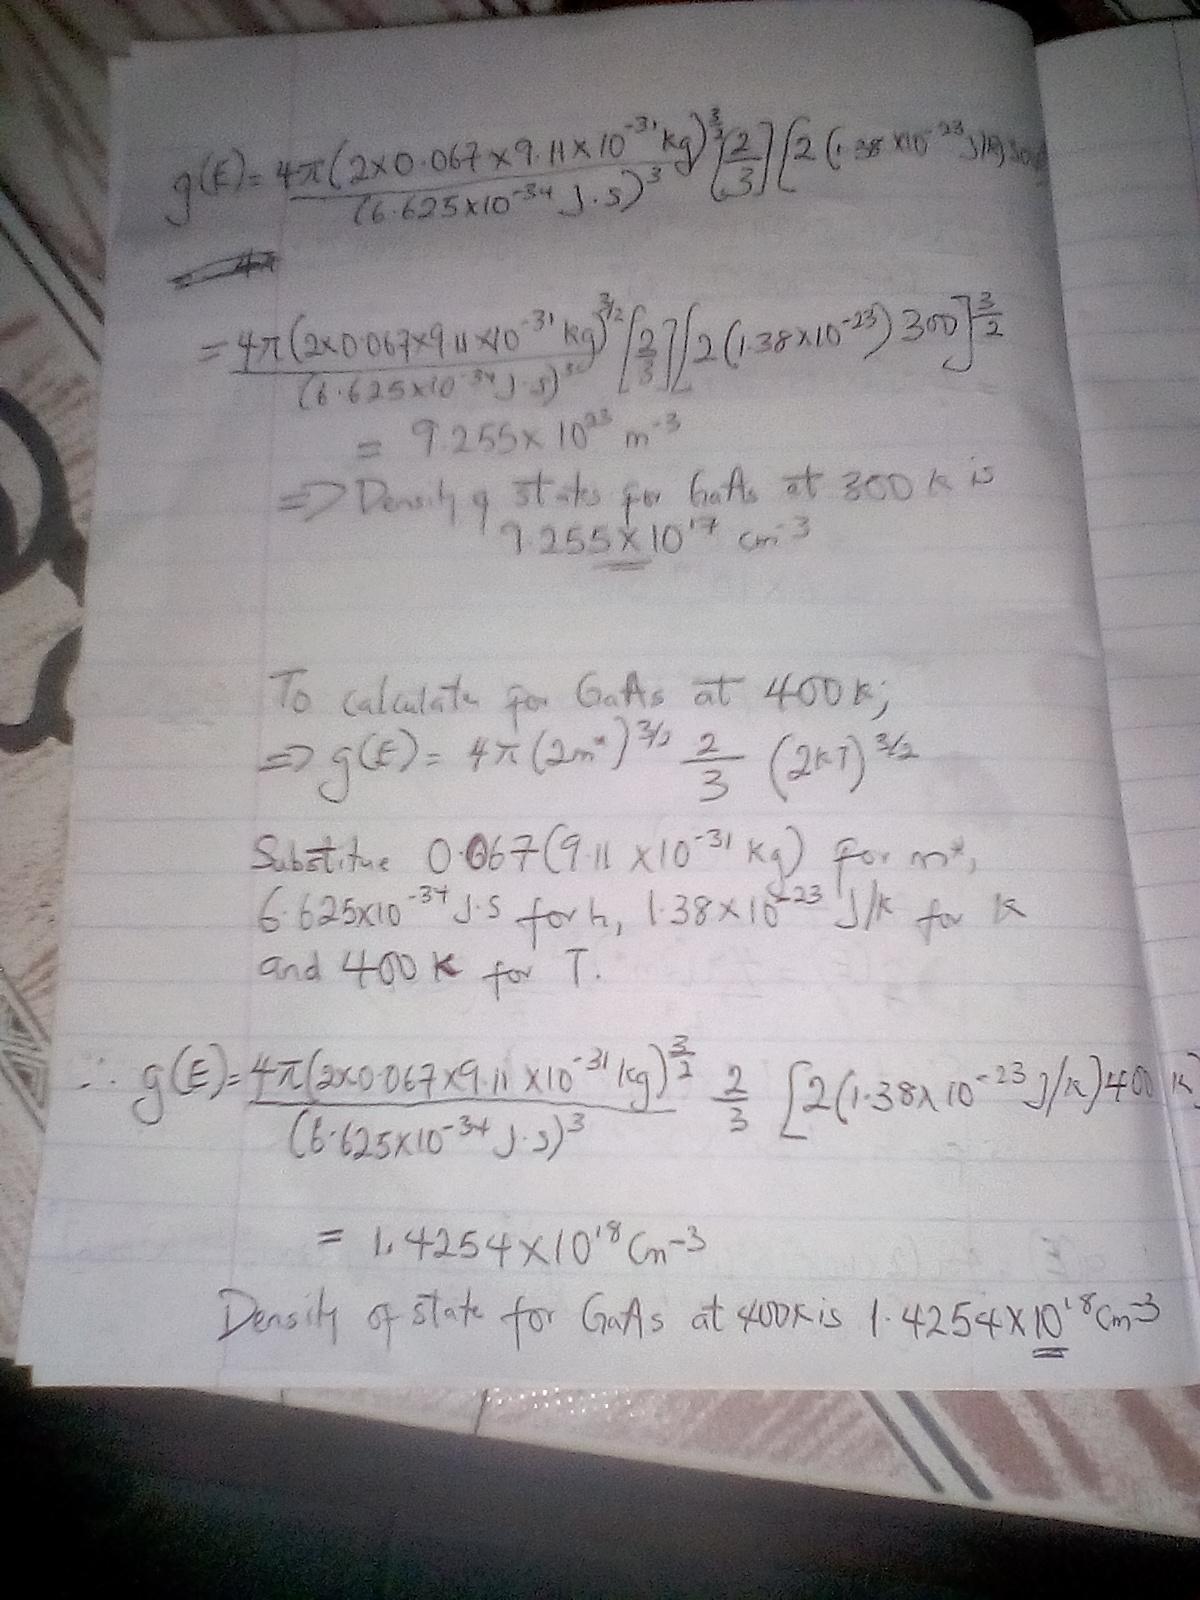 g(E) = 4π(2×0.067×9.11×10⁻³¹ kg)^3/2 [2/3] [2(1.38×10⁻²³ J/K)300
(6.625×10⁻³⁴ J.S)³
= 4π(2×0.067×9.11×10⁻³¹ kg)^3/2 [2/3] [2(1.38×10⁻²³) 300]^3/2
(6.625×10⁻³⁴ J.S)³
= 9.255×10²³ m⁻³
=> Density of states for GaAs at 300 K is
9.255×10¹⁷ cm⁻³
To calculate for GaAs at 400 K;
=> g(E) = 4π(2m*)^3/2 2/3 (2KT)^3/2
Substitue 0.067(9.11×10⁻³¹ kg) for m*,
6.625×10⁻³⁴ J.S for h, 1.38×10⁻²³ J/K for K
and 400 K for T.
∴ g(E) = 4π(2×0.067×9.11×10⁻³¹ kg)^3/2 2/3 [2(1.38×10⁻²³ J/K)400 K]
(6.625×10⁻³⁴ J.S)³
= 1.4254×10¹⁸ Cm⁻³
Density of state for GaAs at 400K is 1.4254×10¹⁸ Cm⁻³